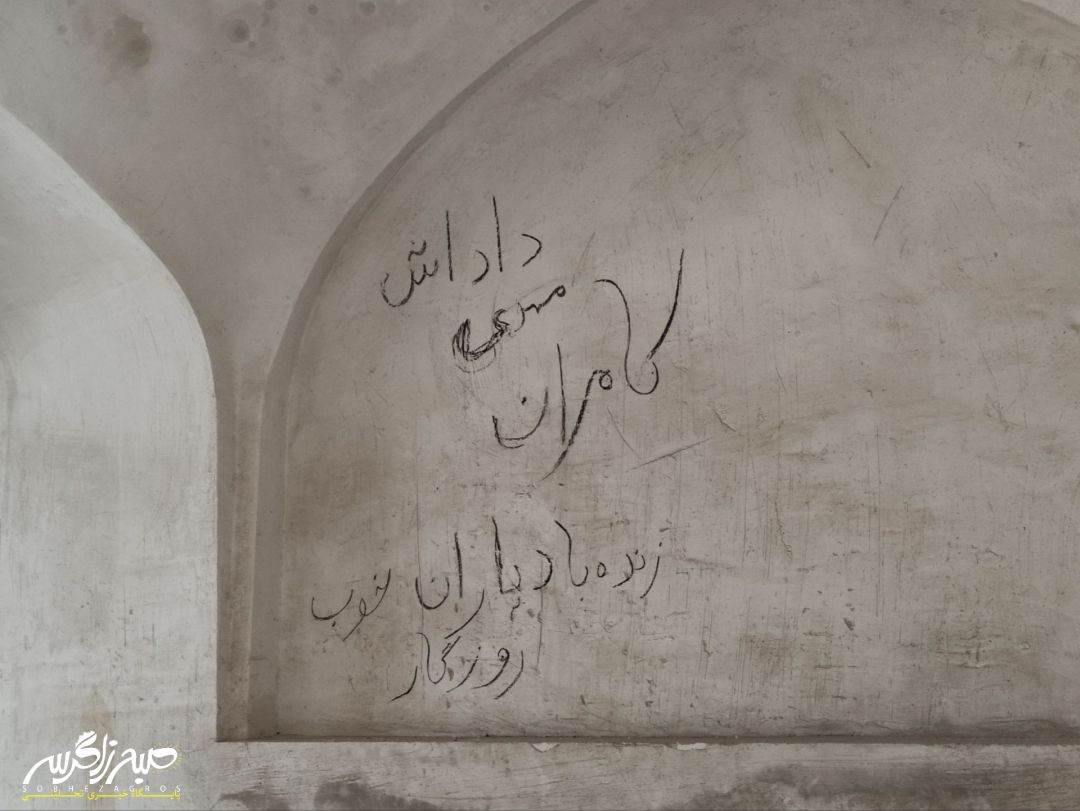 داداش
مهدی
کامران
زنده باد یاران خوب
روزگار
صبح زاگرس
SOBHEZAGROS
پایگاه خبری تحلیلی